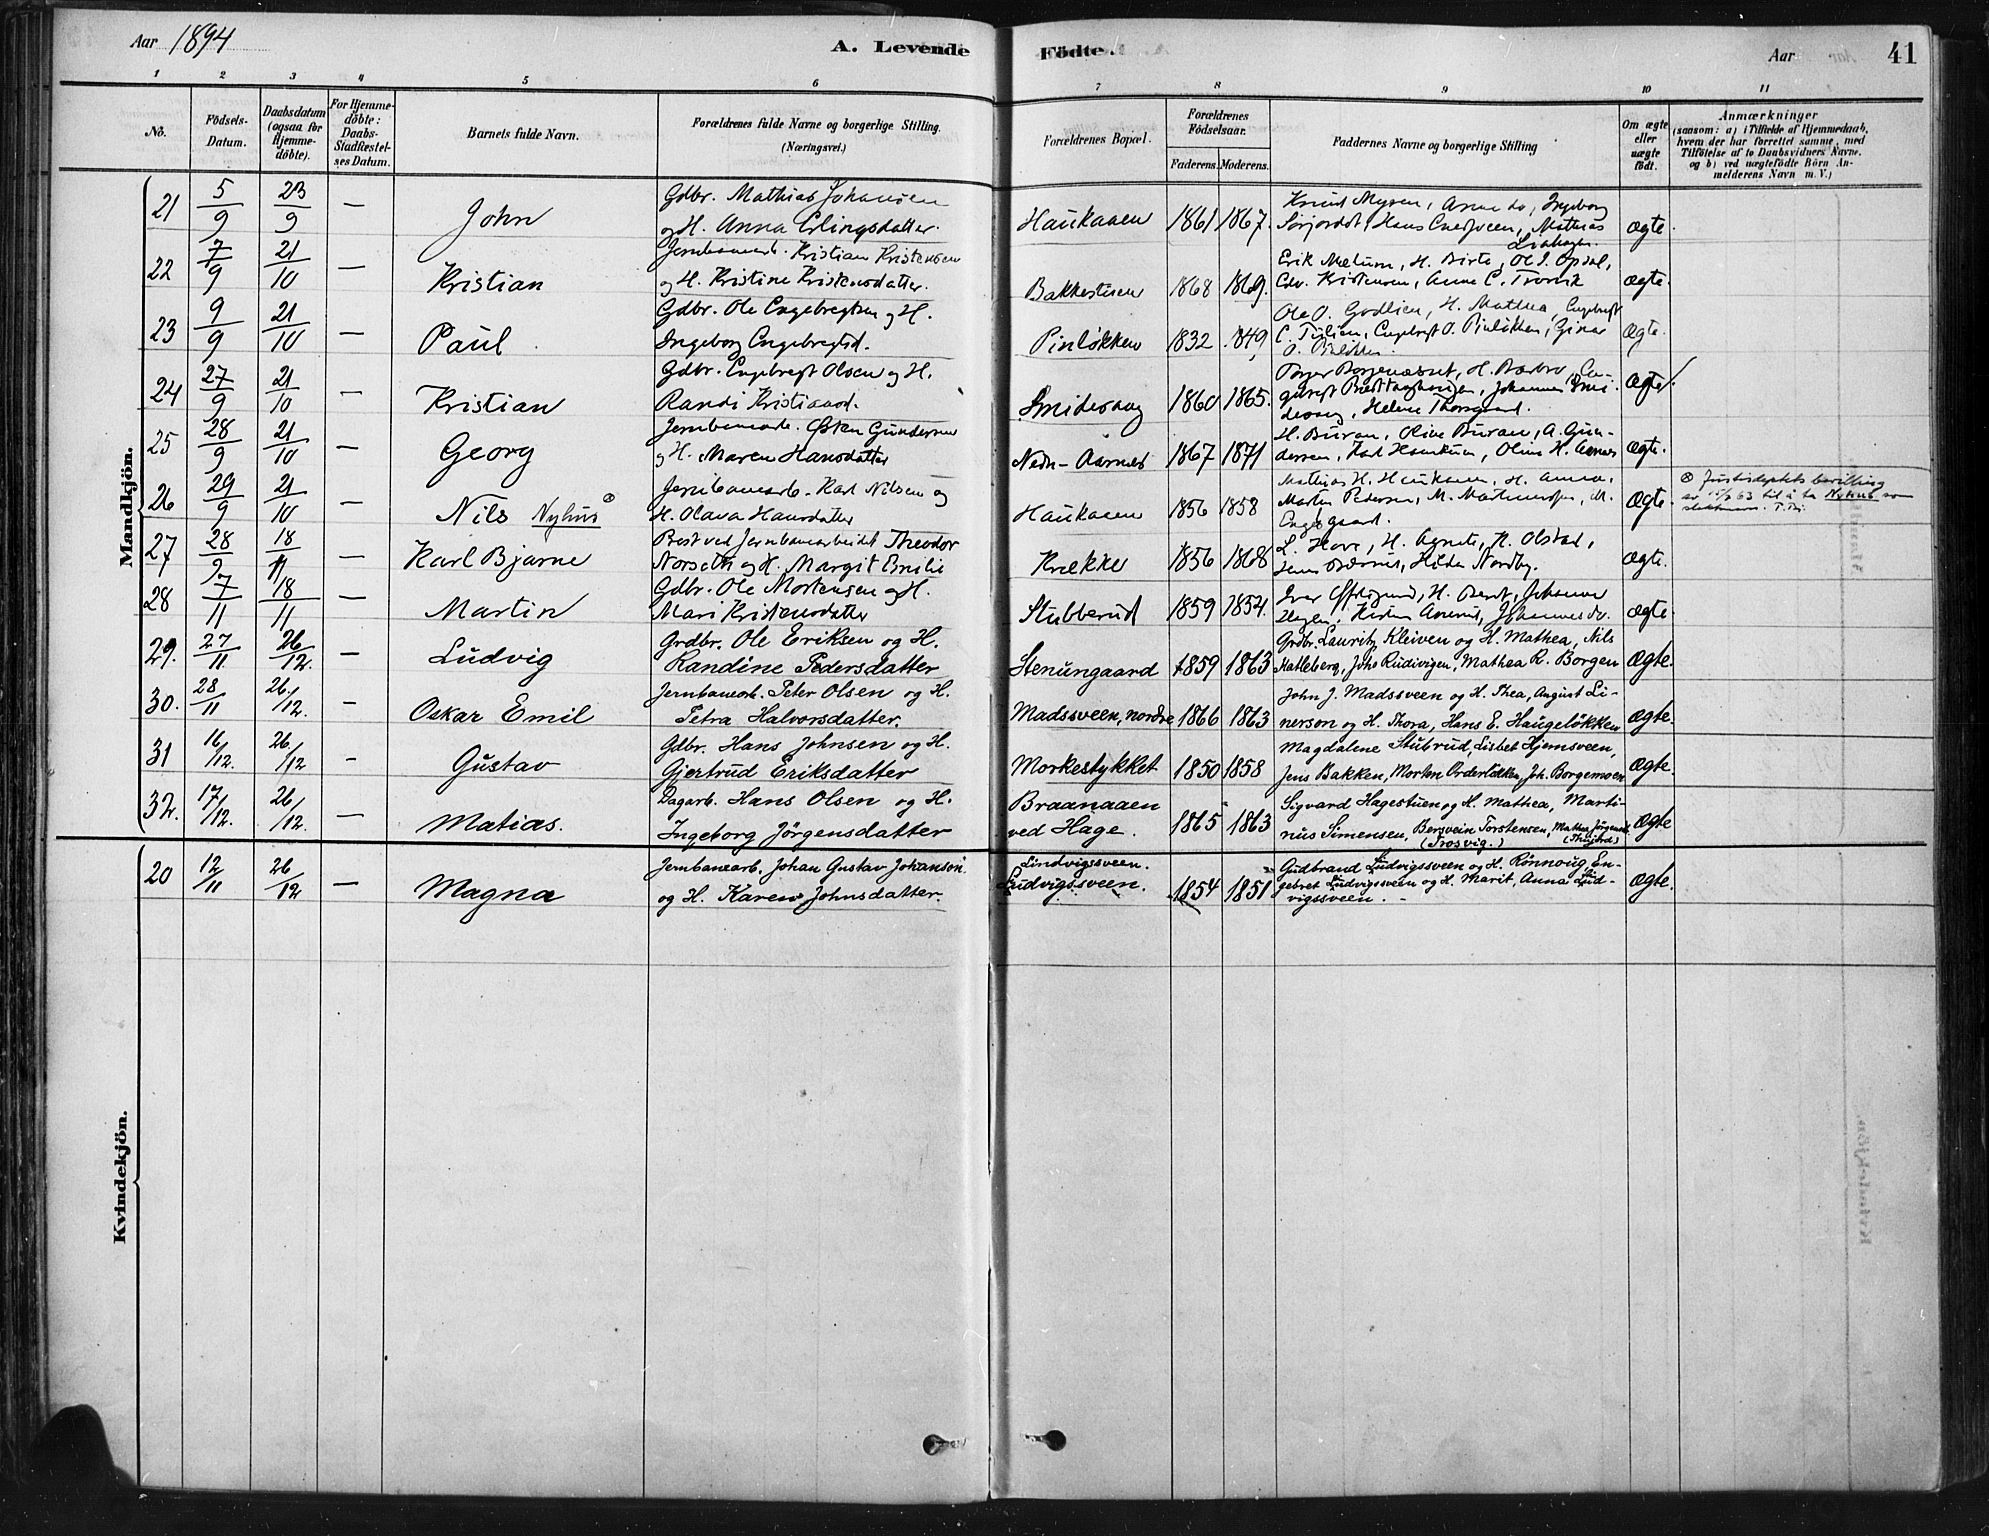 Aar 1894
A. Levende Födte.
Aar
41
1 2 3 4 5 6 7 8 9 10 11
No.
Födsels-Datum.
Daabsdatum (ogsaa for Hjemmedöbte).
For Hjemmedöbte: Daabs-Stadfæstelses Datum.
Barnets fulde Navn.
Forældrenes fulde Navne og borgerlige Stilling.
(Næringsvei.)
Forældrenes Bopæl.
Forældrenes Födselsaar.
Faderens. Moderens.
Faddernes Navne og borgerlige Stilling
Om ægte eller uægte födt.
Anmærkninger
(saasom: a) i Tilfælde af Hjemmedaab,
hvem der har forrettet samme, med
Tilföielse af to Daabsvidners Navne.
og b) ved uægtefödte Börn An-
melderens Navn m. V.)
Mandkjön.
21 5/9 23/9 — John
Gdbr. Mathias Johansen
og H. Anna Erlingsdatter.
Haukaaen 1861 1867.
Knud Mysen, Anne do, Ingeborg
Sörjordet, Hans Mathias
Ægte.
22 7/9 21/10 — Kristian
Jernbanearb. Kristian Kristensen
og H. Kristine Kristensdatter.
Bakkestuen 1868 1869.
Erik Mælum, H. Birte, Ol J. Opdal,
Edv. Kristensen, Anne C.
Ægte.
23 9/9 21/10 — Paul
Gdbr. Ole Engebregtsen og H.
Ingeborg Engebregtsd.
Pinløkken 1832 1849
Ole O. Godlien, H. Mathea, Engebregt
C. Engebregt O. Pinløkken, Gina
O. Pinløkken.
Ægte.
24 27/9 21/10 — Kristian
Gdbr. Engebregt Olsen og H.
Randi Kristiansd.
Smidesang 1860 1865.
H. Barbro En-
Johannes Smi-
desang, Helene
Ægte.
25 28/9 21/10 — Georg
Jernbanearb. Østen Gundersen
og H. Maren Hansdatter
Nedn-Aarnes 1867 1871
H. Buran, Oline Buran, A. Gun-
dersen, Karl Olina H. Aarnes
Ægte.
26 29/9 21/10 — Nils Nyhus ⊗
Jernbanearb. Karl Nilsen og
H. Olava Hansdatter
Haukaaen 1856 1858
Mathias H. Haukaaen, H. Anna,
Marten Pedersen, M. M.
Engegaard.
Ægte.
⊗ Justisdeptets bevilling
av 63 til å ta Nyhus som
slektsnavn.
27 28/9 18/11 — Karl Bjarne
Best ved Jernbanearbeidet Theodor
Norseth og H. Margit Emilie
Krække 1856 1868
L. Hove, H. Agnete, K. Olstad,
Hilda Nordby.
Ægte.
28 7/11 18/11 — Martin
Gdbr. Ole Mortensen og H.
Mari Kristensdatter
Stubberud 1859 1854.
Iver H. Berit, Johanne
Johannes do.
Ægte.
29. 27/11 26/12. — Ludvig
Grdbr. Ole Eriksen og H.
Randine Pedersdatter
Stenungaard 1859 1863
Grdbr. Lauritz Kleiven og H. Mathea, Nils
Hatleberg, Johs Rudivigen, Mathea R. Borgen
Ægte.
30. 28/11 26/12. — Oskar Emil
Jernbanearb. Peter Olsen og H.
Petra Halvorsdatter.
Madssveen, nordre 1866 1863
John J. Madssveen og H. Thea, August Li-
nerson og H. Thora, Hans E. Haugeløkken
Ægte.
31 16/12. 26/12 - Gustav
Gdbr. Hans Johnsen og H.
Gjertrud Eriksdatter
Morkestykket 1850 1858
Magdalene Stubrud, Lisbet Hjemsveen,
Jens Bakken, Morten Orderløkken, Joh. Borgemoen
Ægte.
32. 17/12. 26/12. — Matias.
Dagarb. Hans Olsen og H.
Ingeborg Jörgensdatter
Braanaaen
ved Hage. 1865 1863
Sigvard Hagestuen og H. Mathea, Marti-
nus Simensen, Bersvein Torstensen, Mathea Jörgensd.
(Trosvig.)
Ægte
Kvindekjön.
20 12/11 26/12 — Magna
Jernbanearb. Johan Gustav Johanson
og H. Karen Johnsdatter.
Lindvigssveen.
Ludvigssveen. 1854 1851
Gudbrand Ludvigssveen og H. Rönnoug, En-
gebret Ludvigssveen og H. Marit, Anna Lud-
vigssveen. -
Ægte.